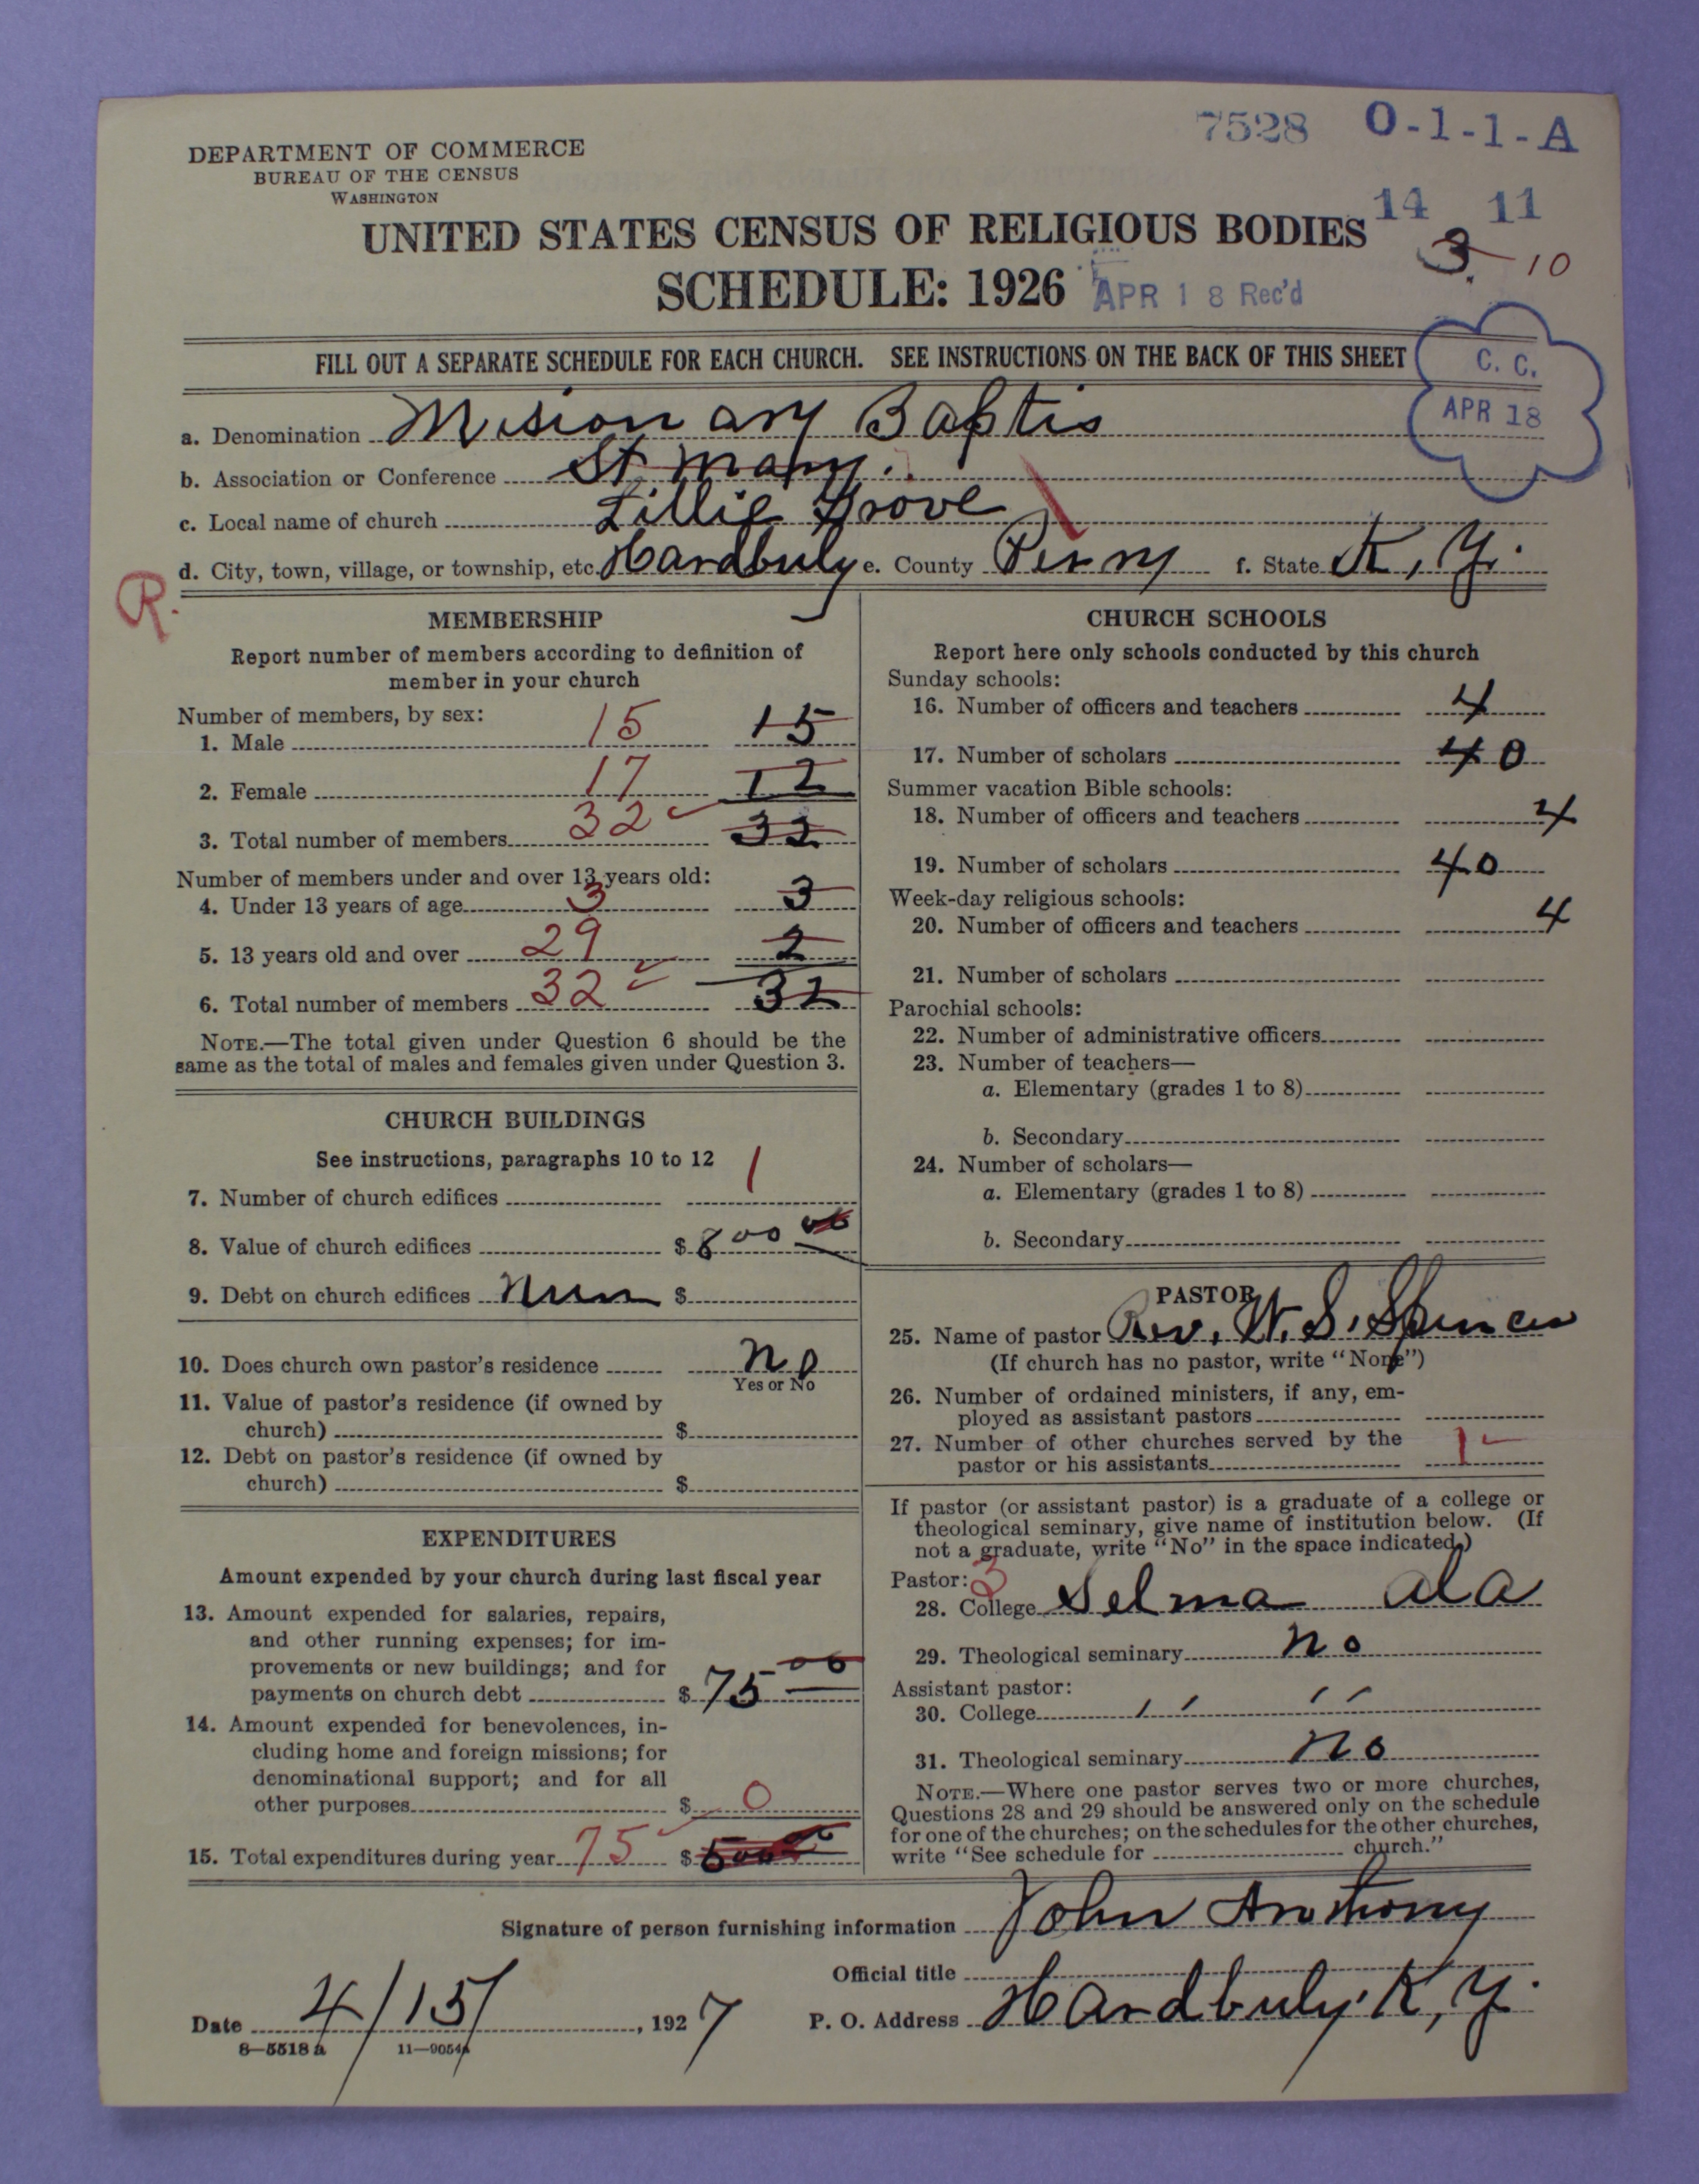 7528 O-1-1-A
DEPARTMENT OF COMMERCE
BUREAU OF THE CENSUS
WASHINGTON
14 11
UNITED STATES CENSUS OF RELIGIOUS BODIES
3 10
SCHEDULE: 1926 APR 18 Rec'd
FILL OUT A SEPARATE SCHEDULE FOR EACH CHURCH. SEE INSTRUCTIONS ON THE BACK OF THIS SHEET
C. C.
APR 18
a. Denomination Misionary Baptis
b. Association or Conference St Mary.
c. Local name of church Lillie Grove
d. City, town, village, or township, etc. Hardbuly e. County Perry f. State K, Y.
R.
MEMBERSHIP
Report number of members according to definition of
member in your church
Number of members, by sex:
1. Male 15 15
2. Female 17 12
3. Total number of members 32 32
Number of members under and over 13 years old:
4. Under 13 years of age 3 3
5. 13 years old and over 29 2
6. Total number of members 32 32
NOTE.—The total given under Question 6 should be the
same as the total of males and females given under Question 3.
CHURCH BUILDINGS
See instructions, paragraphs 10 to 12
7. Number of church edifices 1
8. Value of church edifices $ 800 00
9. Debt on church edifices Nun $
10. Does church own pastor's residence No
Yes or No
11. Value of pastor's residence (if owned by
church) $
12. Debt on pastor's residence (if owned by
church) $
EXPENDITURES
Amount expended by your church during last fiscal year
13. Amount expended for salaries, repairs,
and other running expenses; for im-
provements or new buildings; and for
payments on church debt $ 75 00
14. Amount expended for benevolences, in-
cluding home and foreign missions; for
denominational support; and for all
other purposes $ 0
15. Total expenditures during year 75 $
CHURCH SCHOOLS
Report here only schools conducted by this church
Sunday schools:
16. Number of officers and teachers 4
17. Number of scholars 40
Summer vacation Bible schools:
18. Number of officers and teachers 4
19. Number of scholars 40
Week-day religious schools:
20. Number of officers and teachers 4
21. Number of scholars
Parochial schools:
22. Number of administrative officers
23. Number of teachers—
a. Elementary (grades 1 to 8)
b. Secondary
24. Number of scholars—
a. Elementary (grades 1 to 8)
b. Secondary
PASTOR
25. Name of pastor Rev. W. S. Spencer
(If church has no pastor, write "None")
26. Number of ordained ministers, if any, em-
ployed as assistant pastors
27. Number of other churches served by the
pastor or his assistants 1
If pastor (or assistant pastor) is a graduate of a college or
theological seminary, give name of institution below. (If
not a graduate, write "No" in the space indicated.)
Pastor: 3
28. College Selma ala
29. Theological seminary no
Assistant pastor:
30. College '' ''
31. Theological seminary no
NOTE.—Where one pastor serves two or more churches,
Questions 28 and 29 should be answered only on the schedule
for one of the churches; on the schedules for the other churches,
write "See schedule for church."
Signature of person furnishing information John Anthony
Official title
Date 4/15/, 1927 P. O. Address Hardbuly. K, Y.
8—5518 a 11—9054a